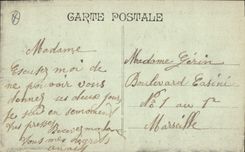 CARTE POSTALE
Madame
Excusez moi de
ne pouvoir vous
donner ces deux jours
Je suis en ce moment
très pressée
Recevez madame
Vous mes
Madame Gérin
Boulevard
N° 1 au 1er
Marseille